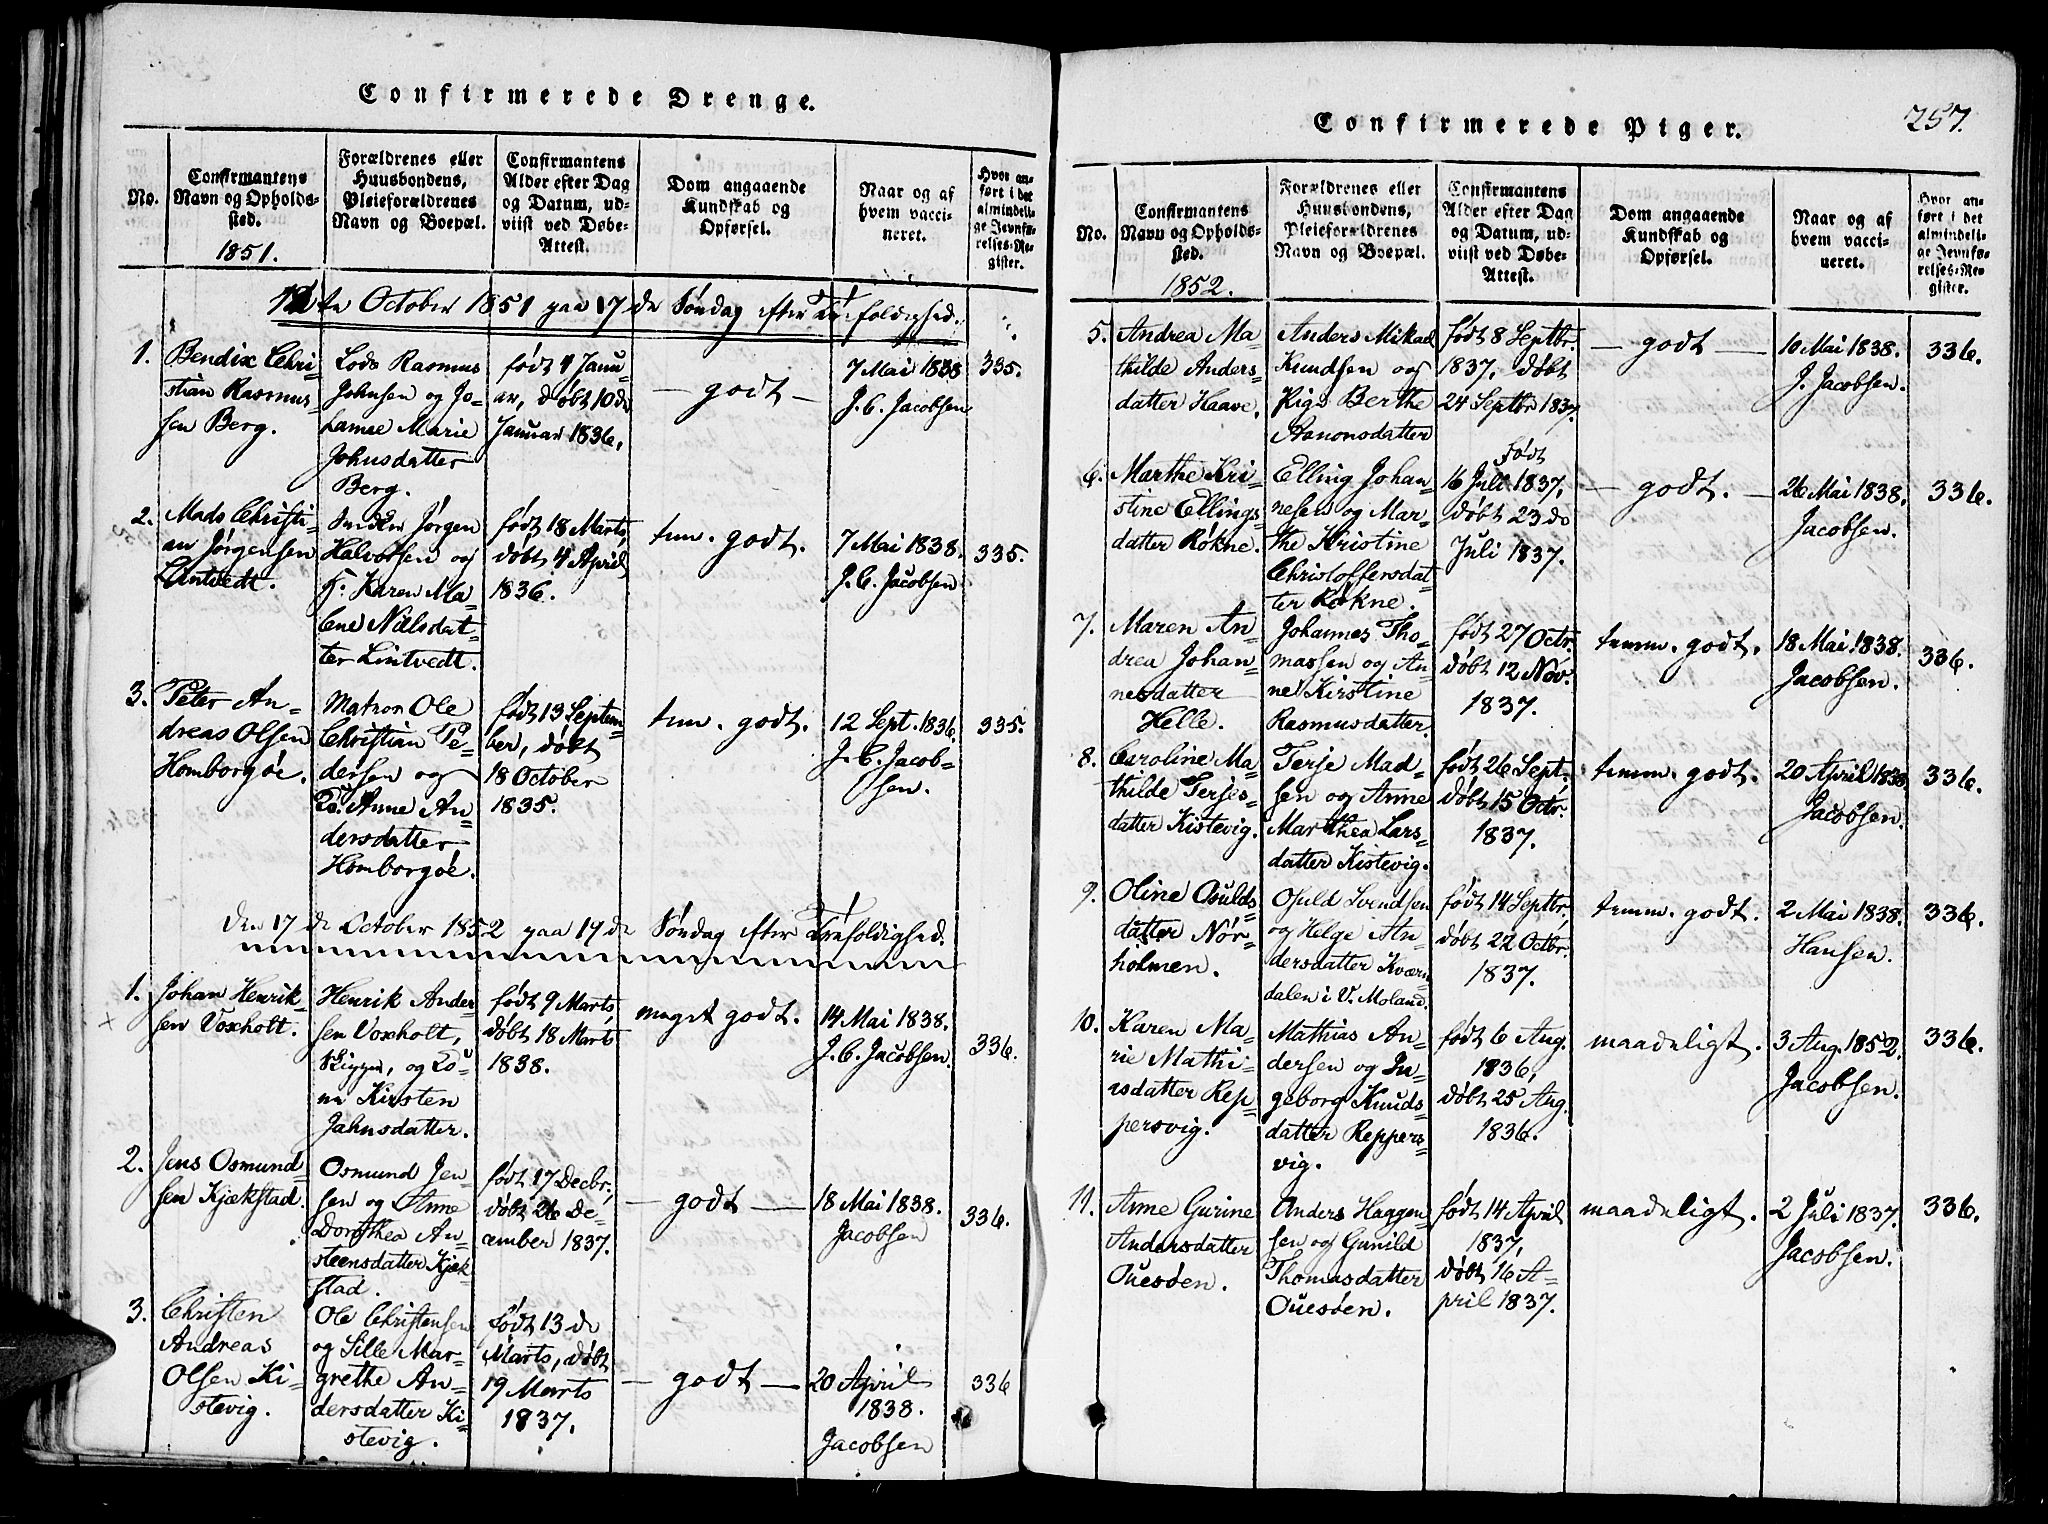 Confirmerede Drenge.
No.
Confirmantens
Navn og Opholds-
sted.
1851.
Forældrenes eller
Huusbondens,
Pleieforældrenes
Navn og Boepæl.
Confirmantens
Alder efter Dag
og Datum, ud-
viist ved Døbe-
Attest.
Dom angaaende
Kundskab og
Opførsel.
Naar og af
hvem vacci-
neret.
Hvor an-
ført i det
almindeli-
ge Jevnfø-
relses-Re-
gister.
October 1851 paa 17de Søndag efter Trefoldighed.
1.
Bendix Chri-
stian Rasmus-
sen Berg.
Lods Rasmus
Johnsen og Jo-
hanne Marie
Johnsdatter
Berg.
født 4 Janu-
ar, døbt 10de
Januar 1836,
— godt —
7 Mai 1838
J. C. Jacobsen
335.
2.
Mads Christi-
an Jørgensen
Lintvedt.
Jørgen
Halvorsen og
K: Karen Ma-
lene Nielsdat-
ter Lintvedt.
født 18 Marts,
døbt 4 April
1836.
tem. godt.
7 Mai 1838.
J. C. Jacobsen
335.
3.
Peter An-
dreas Olsen
Homborgöe.
Matros Ole
Christian Pe-
dersen og
Anne An-
dersdatter
Homborgöe.
født 13 Septem-
ber, døbt
18 October
1835.
tem. godt.
12 Sept. 1836.
J. C. Jacob-
sen.
335.
Den 17de October 1852 paa 19de Søndag efter Trefoldighed.
1.
Johan Henrik-
sen Voxholt.
Henrik Ander
sen Voxholt,
og Ko-
ne Kirsten
Jahnsdatter.
født 9 Marts,
døbt 18 Marts
1838.
meget godt.
14 Mai 1838.
J. C. Jacobsen.
336.
2.
Jens Osmund-
sen Kjækstad.
Osmund Jen-
sen og Anne
Dorothea An-
steensdatter Kjæk-
stad.
født 17 Decbr.,
døbt 26 De-
cember 1837.
— godt —
18 Mai 1838.
Jacobsen
336.
3.
Christen
Andreas
Olsen Ki-
stevig.
Ole Christensen
og Sille Mar-
grethe An-
dersdatter Ki-
stevig.
født 13de
Marts, døbt
19 Marts
1837.
— godt —
20 April
1838.
Jacobsen
336
Confirmerede Piger.
257.
No.
Confirmantens
Navn og Opholds-
sted.
1852.
Forældrenes eller
Huusbondens,
Pleieforældrenes
Navn og Boepæl.
Confirmantens
Alder efter Dag
og Datum, ud-
viist ved Døbe-
Attest.
Dom angaaende
Kundskab og
Opførsel.
Naar og af
hvem vacci-
neret.
Hvor an-
ført i det
almindeli-
ge Jevnfø-
relses-Re-
gister.
5.
Andrea Ma-
thilde Anders-
datter Haave.
Anders Mikael
Knudsen og
Pige Berthe
Aanonsdatter
født 8 Septbr.
1837. døbt
24 Septbr 1837.
— godt —
10 Mai 1838.
J. Jacobsen.
336.
6.
Marthe Kri-
stine Ellings-
datter Røkne.
Elling Johan-
nesen og Mar-
the Kristine
Christoffersdat-
ter Røkne.
Født
16 Juli 1837,
døbt 23de
Juli 1837.
— godt. —
26 Mai 1838.
Jacobsen.
336.
7.
Maren An-
drea Johan-
nesdatter
Helle.
Johannes Tho-
massen og An-
ne Kirstine
Rasmusdatter.
født 27 Octr.
døbt 12 Nov.
1837.
temm. godt.
18 Mai 1838.
Jacobsen.
336.
8.
Caroline Ma-
thilde Terjes-
datter Kistevig.
Terje Mad-
sen og Anne
Marthea Lars-
datter Kistevig.
født 26 Sept.
døbt 15 Octr.
1837.
temm. godt.
20 April 1838
Jacobsen.
336.
9.
Oline Osulds-
datter Nör-
holmen.
Osuld Svendsen
og Helge An-
dersdatter Kværn
dalen i V. Moland.
født 14 Septbr.
døbt 22 Octbr.
1837.
temm. godt.
2 Mai 1838.
Hansen.
336.
10.
Karen Ma-
rie Mathi-
asdatter Rep-
persvig.
Mathias An-
dersen og In-
geborg Knuds-
datter Reppers-
vig.
født 6 Aug.
1836,
døbt 25 Aug.
1836.
maadeligt.
3 Aug. 1852.
Jacobsen.
336.
11.
Anne Gurine
Andersdatter
Ouesöen.
Anders Haagen-
sen og Gunild
Thomasdatter
Ouesöen.
født 14 April
1837,
døbt 16 A-
pril 1837.
maadeligt.
2 Juli 1837.
Jacobsen.
336.